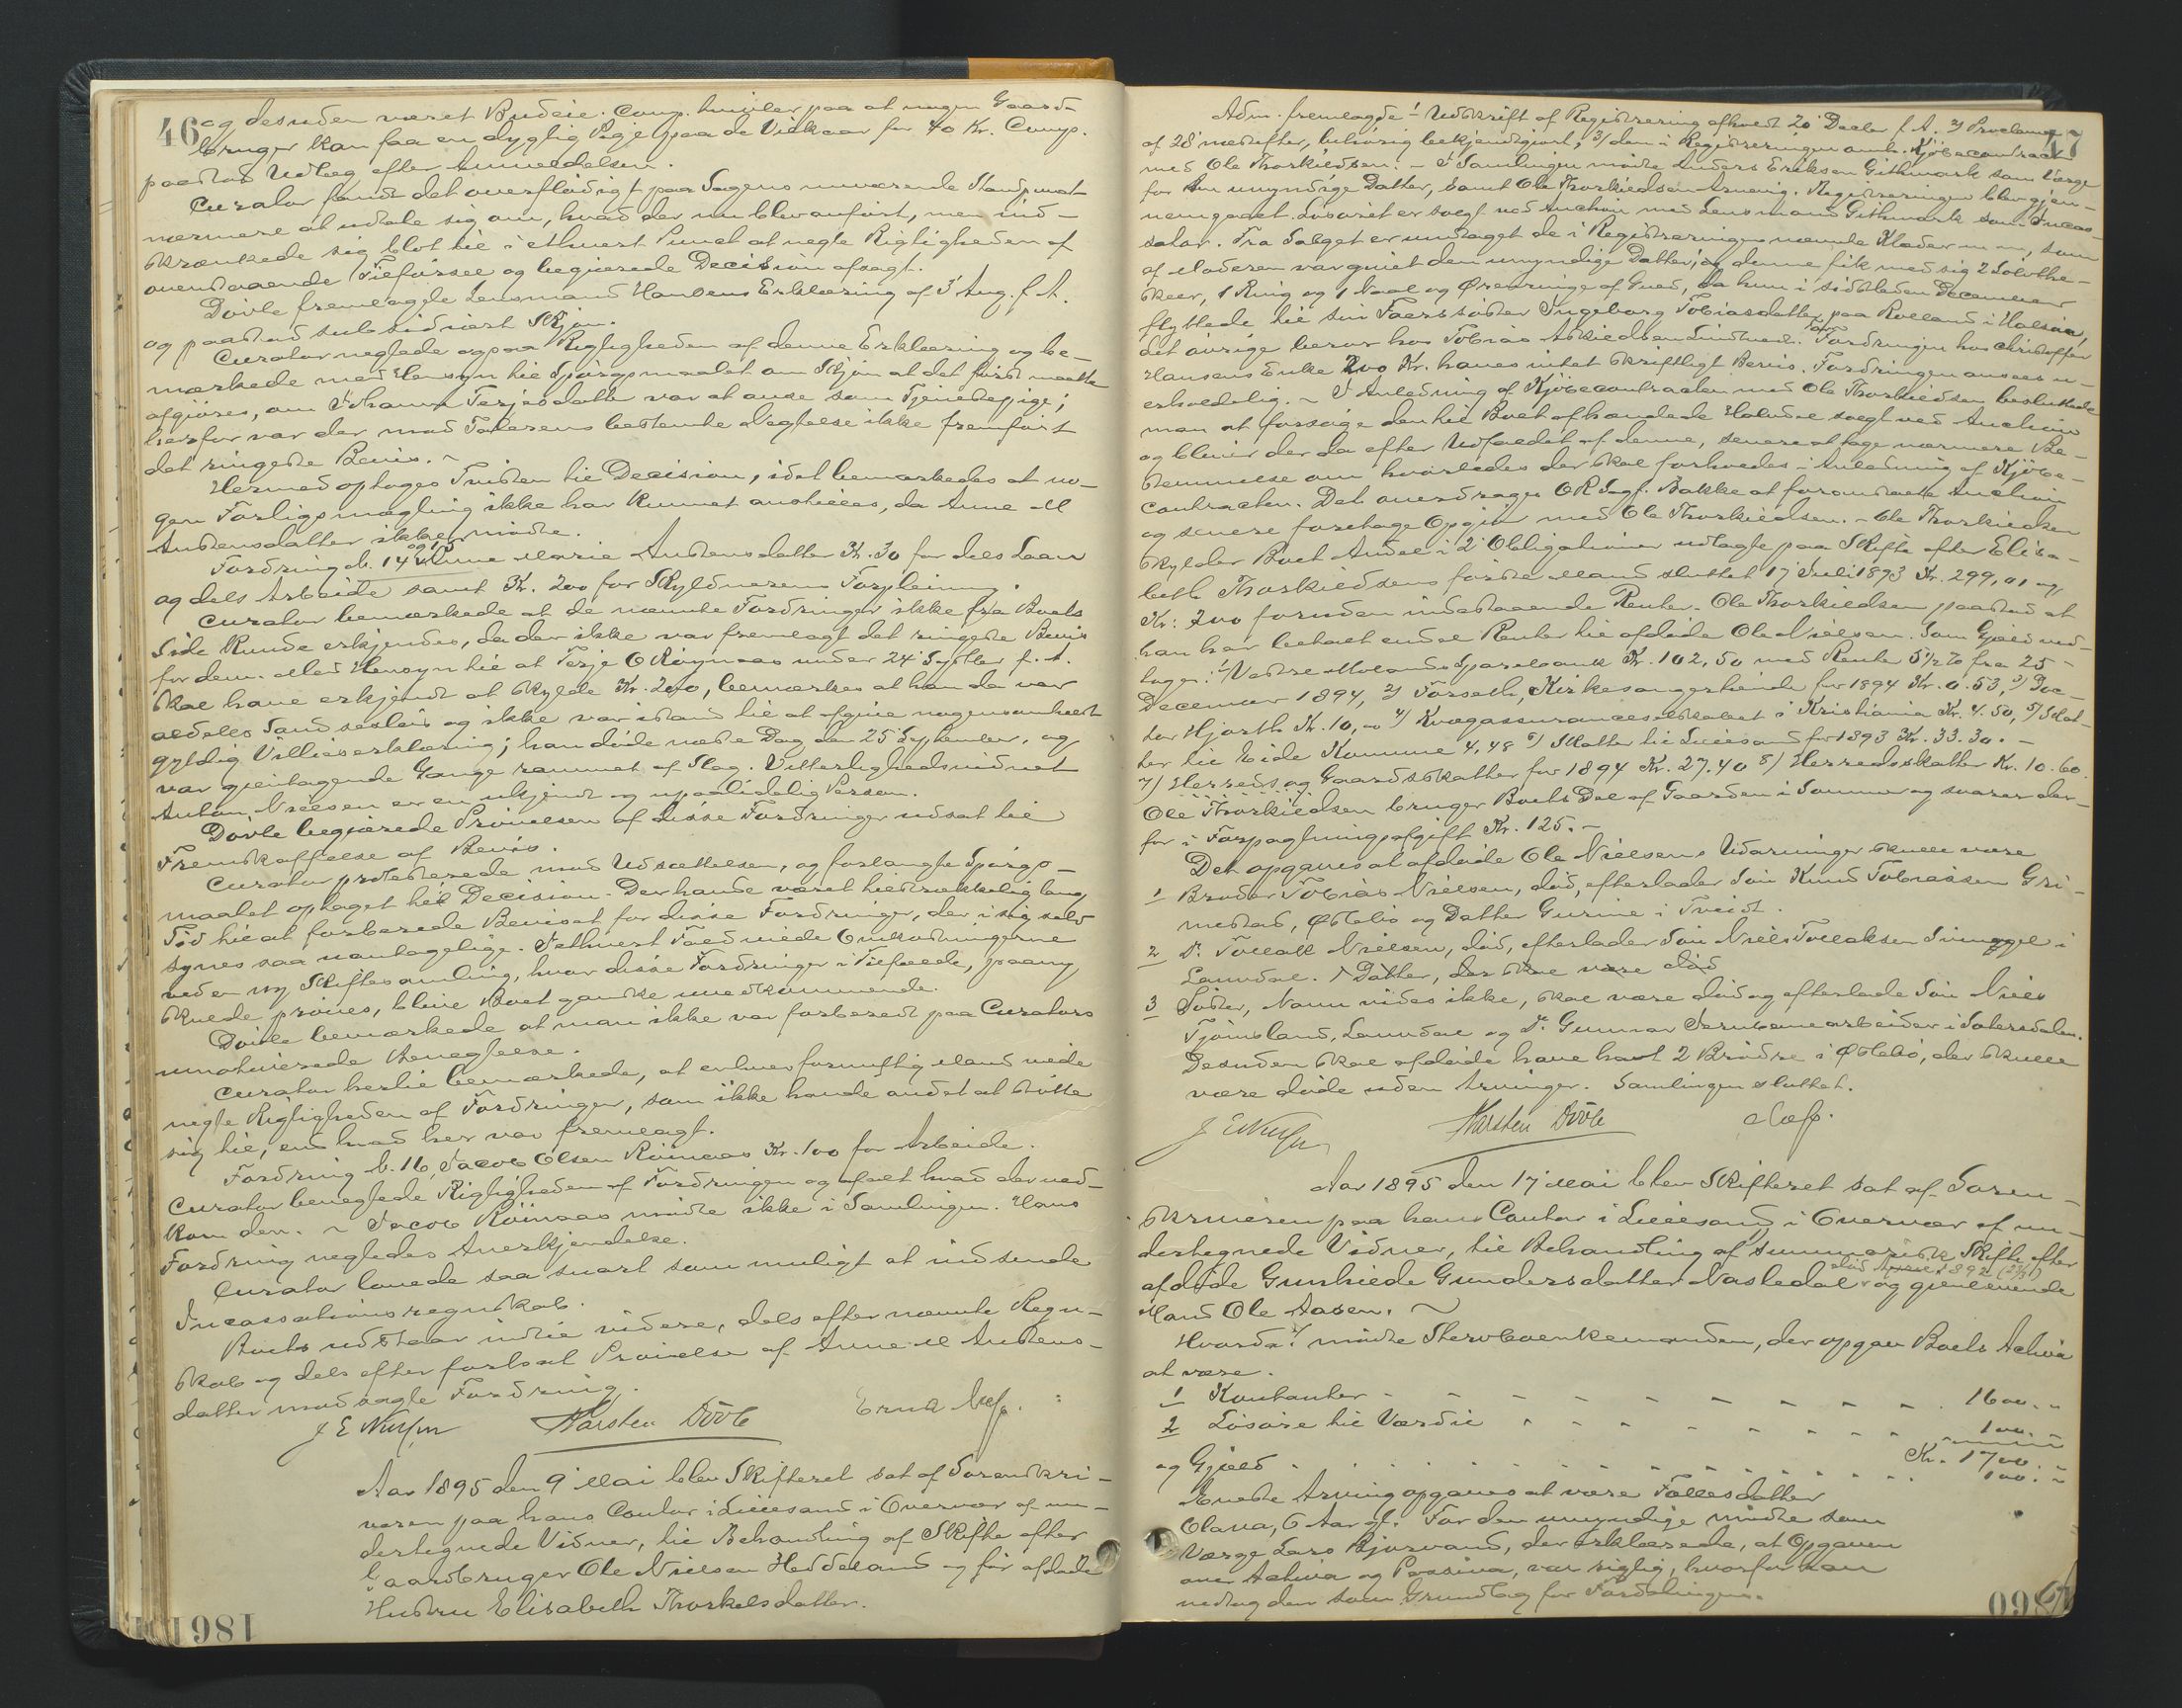 46
og desuden været Budeie. Comp. tvivler paa at nogen Gaard-
bruger kan faa en dygtig Pige paa de Vilkaar for 40 Kr. Comp.
paastod Udlæg efter Anmeldelsen.
Curator fandt det overflødigt paa Sagens nuværende Standpunct
nærmere at udtale sig om, hvad der nu blev anført, men ind-
skrænkede sig blot til i ethvert Punct at negte Rigtigheden af
ovenstaaende Tilførsel og begjærede Decision afsagt.
Dovle fremlagde Lensmand Hansens Erklæring af 3 Aug. f. A.
og paastod subsidiært Skjøn.
Curator neglede ogsaa Rigtigheden af denne Erklæring og be-
mærkede med Hensyn til Spørgsmaalet om Skjøn at det først maatte
afgjøres, om Johanne Terjesdatter var at anse som Tjenestepige;
herfor var der mod Taleren bestemte Negtelse ikke fremført
det ringeste Bevis. ~
Hermed optoges Tvisten til Decision, idet bemærkedes at no-
gen Forligsmægling ikke har kunnet anstilles, da Anne M
Anstensdatter ikke mødte.
Fordring No. 14 og 15 Anne Marie Anstensdatter Kr. 30 for dels Laan
og dels Arbeide samt Kr. 200 for Skyldnerens Forpleining.
Curator bemærkede at de nævnte Fordringer ikke fra Boets
Side kunde erkjendes, da der ikke var fremlagt det ringeste Bevis
for dem. Med Hensyn til at Terje O Røinaas under 24 Septbr f. A.
skal have erkjendt at skylde Kr. 200, bemærkes at han da var
aldeles sandsesløs og ikke var istand til at afgive nogensomhelst
gyldig Villieserklæring; han døde næste Dag den 25 September, og
var gjentagende Gange rammet af Slag. Vitterlighedsvidnet
Anton Nielsen er en ukjendt og upaalidelig Person.
Dovle begjærede Prøvelsen af disse Fordringer udsat til
Fremskaffelse af Bevis.
Curator protesterede mod Udsættelsen, og forlangte Spørgs-
maalet optaget til Decision. Der havde været tilstrækkelig lang
Tid til at forberede Beviset for disse Fordringer, der i sig selv
synes saa uantagelige. I ethvert Fald vilde Omkostningerne
ved en ny Skiftesamling, hvor disse Fordringer i Tilfælde, paany
skulde prøves, blive Boet ganske uvedkommende.
Dovle bemærkede at man ikke var forberedt paa Curators
umotiverede Benegtelse.
Curator hertil bemærkede, at enhver fornuftig Mand vilde
negte Rigtigheden af Fordringer, som ikke havde andet at støtte
sig til, end hvad her var fremlagt.
Fordring No. 16 Jacob Olsen Røinaas Kr. 100 for Arbeide.
Curator benegtede Rigtigheden af Fordringen og afalt hvad der ved-
kom den. ~ Jacob Røinaas mødte ikke i Samlingen. Hans
Fordring negtedes Anerkjendelse.
Curator lovede saa snart som muligt at indsende
Incassationsregnskab.
Boets udstaar indtil videre, dels efter nævnte Regn-
skab og dels efter fortsat Prøvelse af Anne M Anstens-
datter modsagte Fordring.
J E Nielsen Karsten Dovle
Aar 1895 den 9 Mai blev Skifteret sat af Sorenskri-
veren paa hans Contor i Lillesand i Overvær af un-
dertegnede Vidner, til Behandling af Skifte efter
Gaardbruger Ole Nielsen Heddeland og før afdøde
Hustru Elisabeth Thorkelsdatter.
1861
47
Adm. fremlagde 1) Udskrift af Registrering afholdt 20 Decbr f. A. 2) Proclama
af 28 næstefter, behørig bekjendtgjort, 3) den i Registreringen omh. Kjøbecontract
med Ole Thorkildsen. - I Samlingen mødte Anders Eriksen Githmark som Værge
for den umyndige Datter, samt Ole Thorkildsen. Registreringen blev gjen-
nemgaaet. Løsøret er solgt ved Auction med Lensmand Githmark som Incas-
sator. Fra Salget er undtaget de i Registreringen nævnte Klæder m m, som
af Moderen var givet den umyndige Datter; og denne fik med sig 2 Sølvthe-
skeer, 1 Ring og 1 Naal og Ørenringe af Guld, da hun i sidstleden December
flyttede til sin Faerssøster Ingeborg Tobiasdatter paa Rolland i
det øvrige beror hos Tobias Fordringen hos Christoffer
Hansens Enke 200 Kr. haves intet skriftligt Bevis. Fordringen ansees u-
erholdelig. ~ I Anledning af Kjøbecontracten med Ole Thorkildsen besluttede
man at forsøge den til Boet afhændede Halvdel solgt ved Auction
og bliver der da efter Udfaldet af denne, senere at tage nærmere Be-
stemmelse om hvorledes der skal forholdes i Anledning af Kjøbe-
contracten. Det overdroges ORSagf. Bakke at foranstalte Auction
og senere foretage Opgjør med Ole Thorkildsen. - Ole Thorkildsen
skylder Boet Andel i 2 Obligationer udlagte paa Skifte efter Elisa-
beth Thorkildsens første Mand sluttet 17 Juli 1893 Kr. 299,01 og
Kr. 200 foruden indestaaende Renter. Ole Thorkildsen paastod at
han har betalt endel Renter til afdøde Ole Nielsen. Som Gjæld ved-
toges: 1) Vestre Molands Sparebank Kr. 102,50 med Renter 5½% fra 25
December 1894, 2) Forseth, Kirkesangertiende for 1894 Kr. 0.53, 3) Doc-
tor Hjorth Kr. 10, 4) Kvægassuranceselskabet i Kristiania Kr. 4.50, 5) Skat-
ter til Eide Kommune 4,48 6) Skatter til Lillesand for 1893 Kr. 33.30. -
7) Herreds og Gaardskatter for 1894 Kr. 27.40 8) Herredsskatter Kr. 10.60.
Ole Thorkildsen bruger Boets Del af Gaarden i Sommer og svarer der-
for i Forpagtningsafgift Kr. 125. -
Det opgaves at afdøde Ole Nielsens Udarvinger skulle være
1 Broder Tobias Nielsen, død, efterlader Søn Knud Tobiassen Gri-
mestad, Østebø og Datter Gurine i Tveidt.
2 Do. Tollak Nielsen, død, efterlader Søn Niels Tollaksen i
Laundal. 1 Datter, der skal være død
3 Søster, Navn vides ikke, skal være død og efterlade Søn Niels
Tjomsland, Laundal og Do. Gunnar Jernbanearbeider i Sætersdalen.
Desuden skal afdøde have havt 2 Brødre i Østebø, der skulle
være døde uden Arvinger. Samlingen sluttet.
J E Nielsen Karsten Dovle
Aar 1895 den 17 Mai blev Skifteret sat af Soren-
skriveren paa hans Contor i Lillesand, i Overvær af un-
dertegnede Vidner, til Behandling af summarisk Skifte efter
død 1892
afdøde Gunhilde Gundersdatter og gjenlevende
Mand Ole Aasen. ~
Hvorda: mødte Stervboenkemanden, der opgav Boets Activa
at være.
1 Kontanter - - - - - - - - 1600. "
2 Løsøre til Værdi - - - - - - - 100. "
Kr. 1700. "
og Gjæld - - - - - - - - - - 100. "
Eneste Arving opgaves at være Fællesdatter
Olava, 6 Aar gl. For den umyndige mødte som
Værge Lars Bjorvand, der erklærede, at Opgaven
over Activa og Passiva, var rigtig, hvorfor han
vedtog den som Grundlag for Fordelingen.